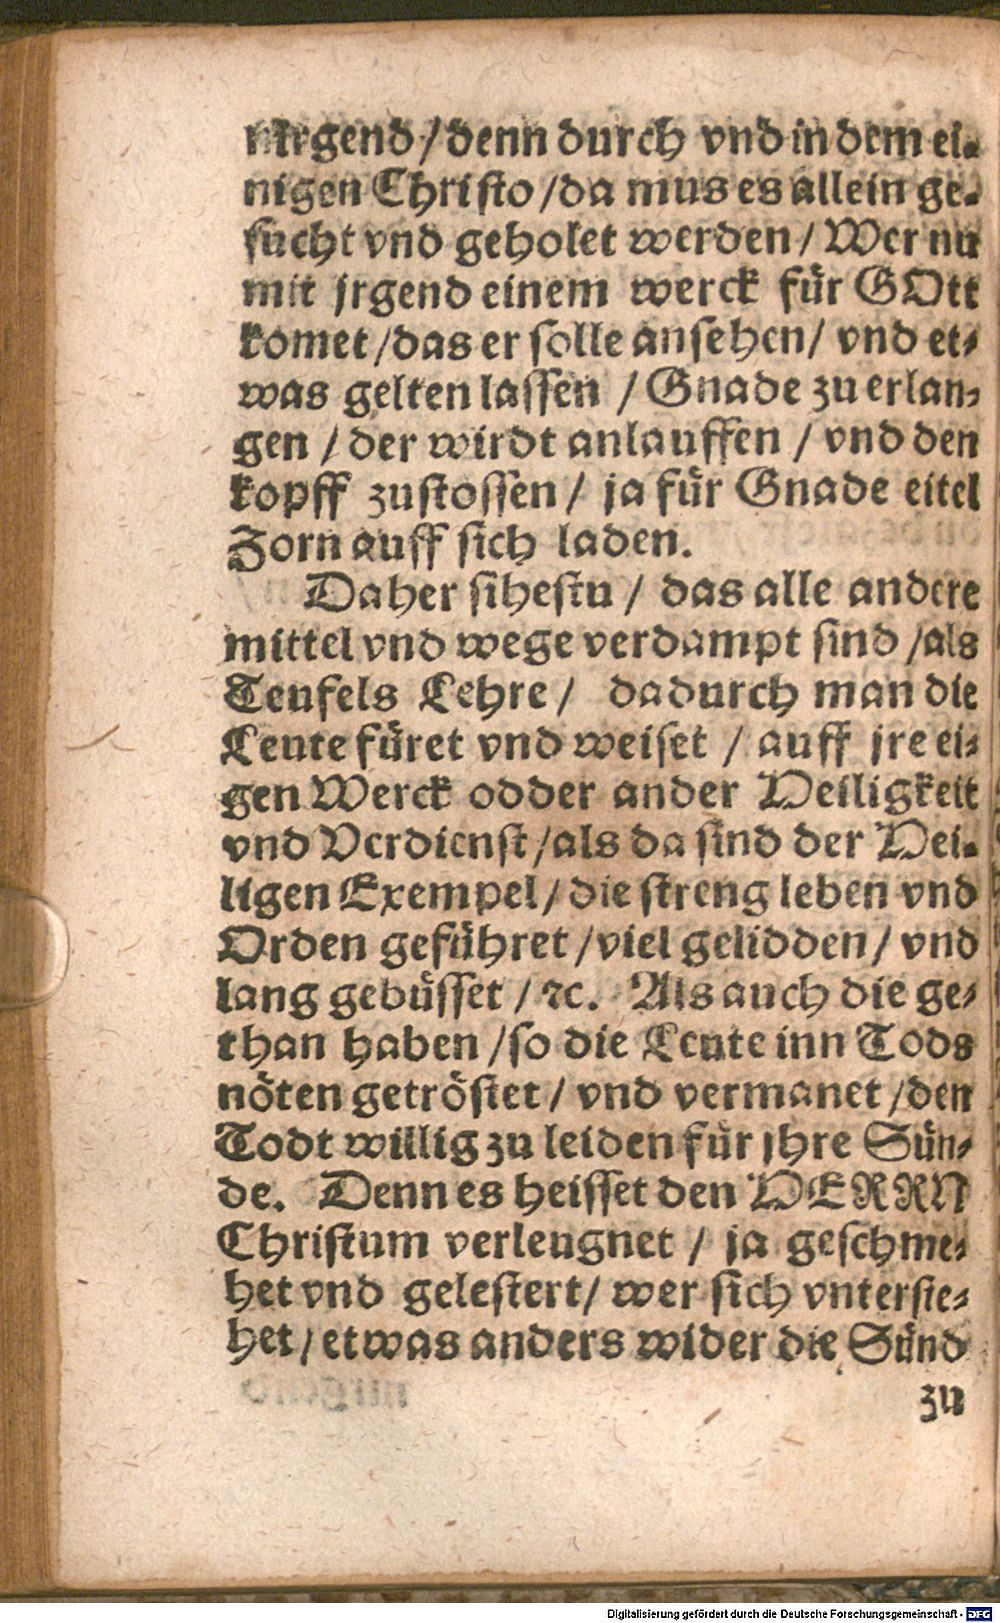 nirgend / denn durch vnd in dem ei-
nigen Christo / da mus es allein ge-
sucht vnd geholet werden / Wer nu
mit jrgend einem werck für GOtt
komet / das er solle ansehen / vnd et-
was gelten lassen / Gnade zu erlan-
gen / der wirdt anlauffen / vnd den
kopff zustossen / ja für Gnade eitel
Zorn auff sich laden.
Daher sihestu / das alle andere
mittel vnd wege verdampt sind / als
Teufels Lehre / dadurch man die
Leute füret vnd weiset / auff jre ei-
gen Werck odder ander Heiligkeit
vnd Verdienst / als da sind der Hei-
ligen Exempel / die streng leben vnd
Orden geführet / viel gelidden / vnd
lang gebüsset / ꝛc. Als auch die ge-
than haben / so die Leute inn Tods
nöten getröstet / vnd vermanet / den
Todt willig zu leiden für jhre Sün-
de. Denn es heisset den HERRN
Christum verleugnet / ja geschme-
het vnd gelestert / wer sich vnterste-
het / etwas anders wider die Sünd
zu
Digitalisierung gefördert durch die Deutsche Forschungsgemeinschaft - DFG